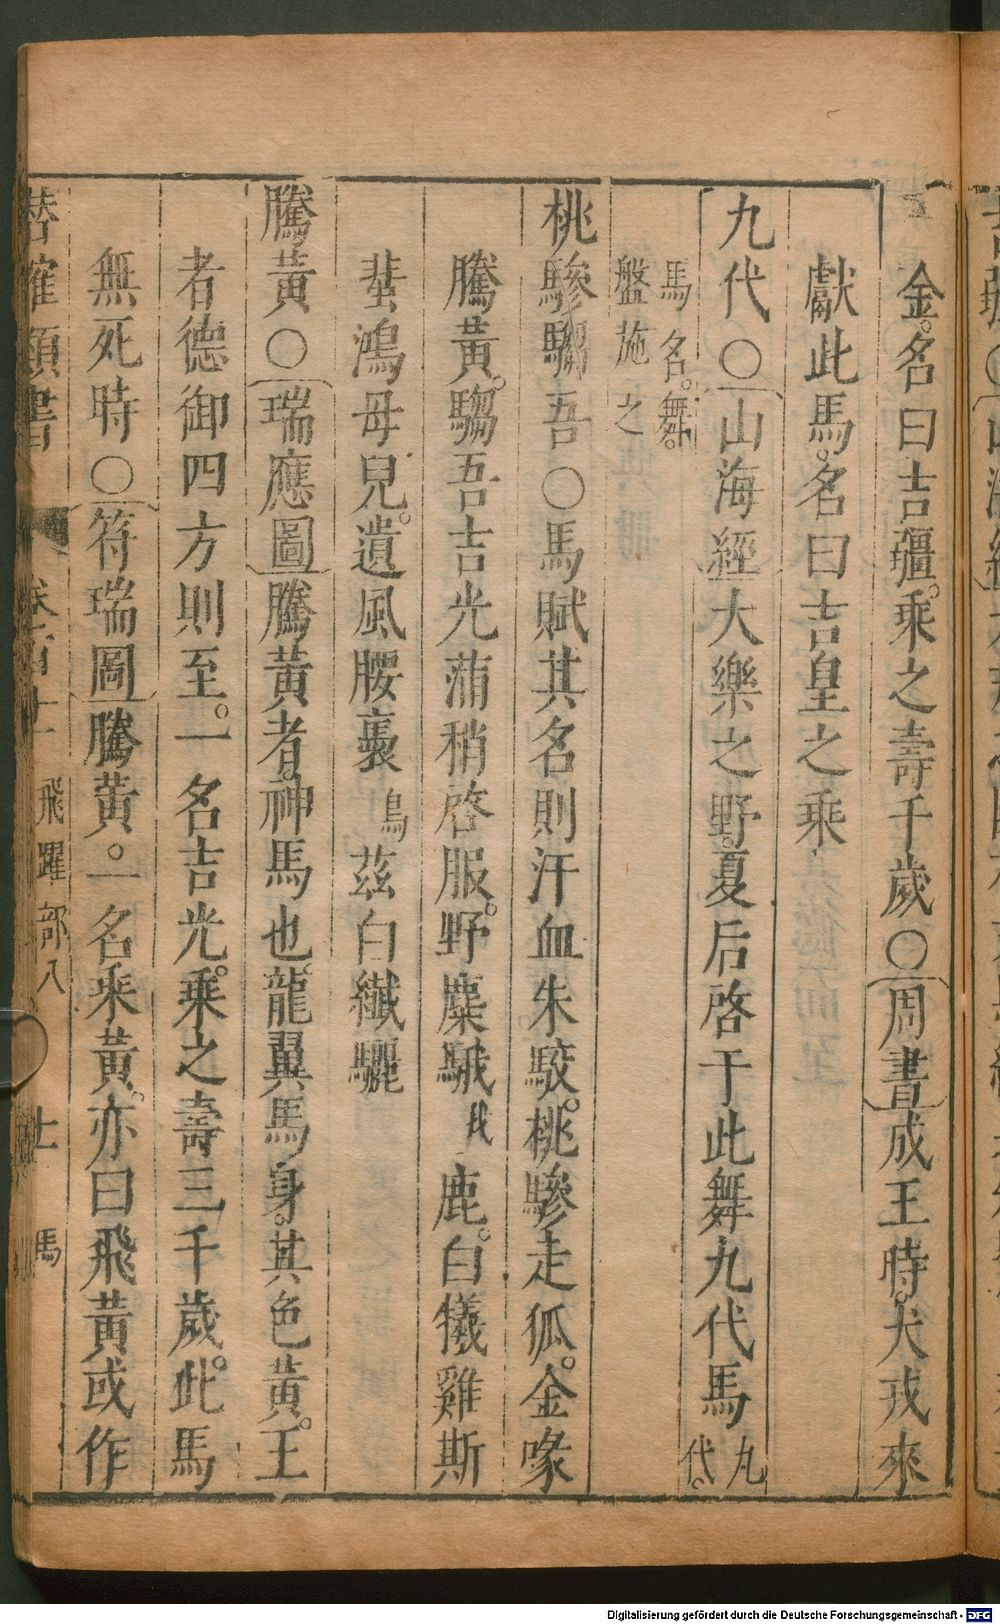 金名曰吉疆乘之壽千歲○周書成王時犬戎來
獻此馬名曰吉皇之乘
九代○山海經大樂之野夏后啓于此舞九代馬九代
馬名舞
盤施之
桃驂騶吾○馬賦其名則汗血朱駮桃驂走狐金喙
騰黃騶吾吉光蒲稍啓服野麋駥我鹿白犧雞斯
蜚鴻母兒遺風騕褭烏茲白纖驪
騰黃○瑞應圖騰黃者神馬也龍翼馬身其色黃王
者德御四方則至一名吉光乘之壽三千歲此馬
無死時○符瑞圖騰黃一名乘黃亦曰飛黃或作
類書 飛躍部八 十一 馬
Digitalisierung gefördert durch die Deutsche Forschungsgemeinschaft - DFG